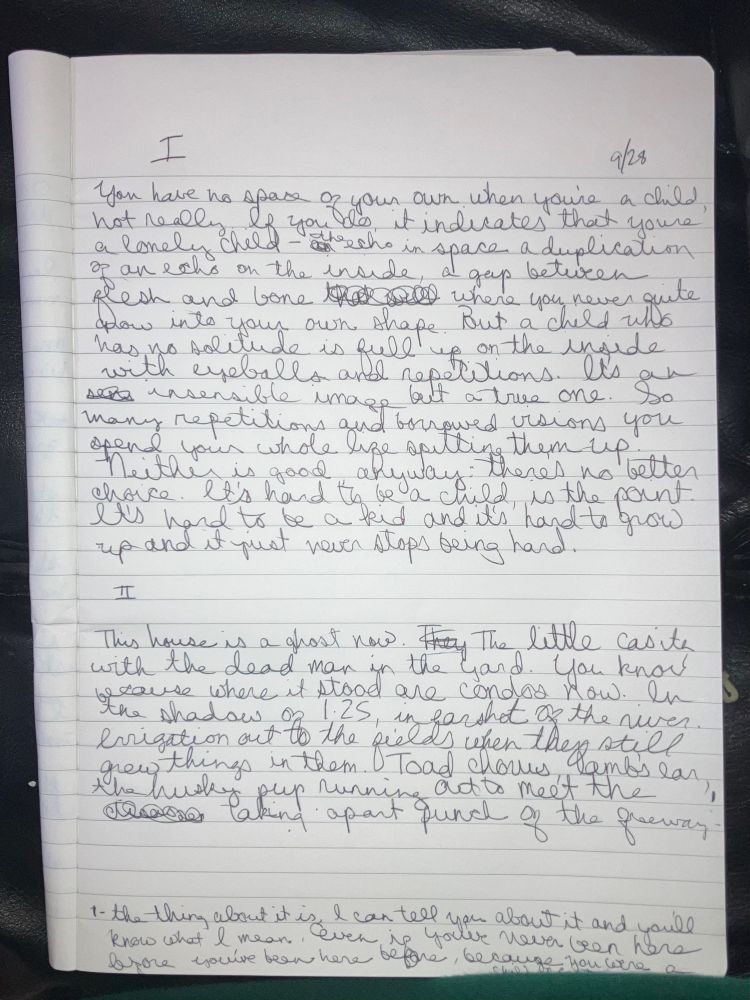 I
9/28
You have no space of your own when you're a child,
not really. If you do, it indicates that you're
a lonely child - the echo in space a duplication
of an echo on the inside, a gap between
flesh and bone where you never quite
grow into your own shape. But a child who
has no solitude is full up on the inside
with eyeballs and repetitions. It's an
insensible image but a true one. So
many repetitions and borrowed visions you
spend your whole life spitting them up.
Neither is good anyway: there's no better
choice. It's hard to be a child, is the point.
It's hard to be a kid and it's hard to grow
up and it just never stops being hard.
II
This house is a ghost now. They The little casita
with the dead man in the yard. You know
because where it stood are condos now. In
the shadow of I-25, in earshot of the river.
Irrigation out to the fields when they still
grew things in them. Toad chorus, lamb's ear,
the husky pup running out to meet the
taking apart punch of the freeway.
1- the thing about it is, I can tell you about it and you'll
know what I mean. even if you've never been here
before you've been here before, because you were a